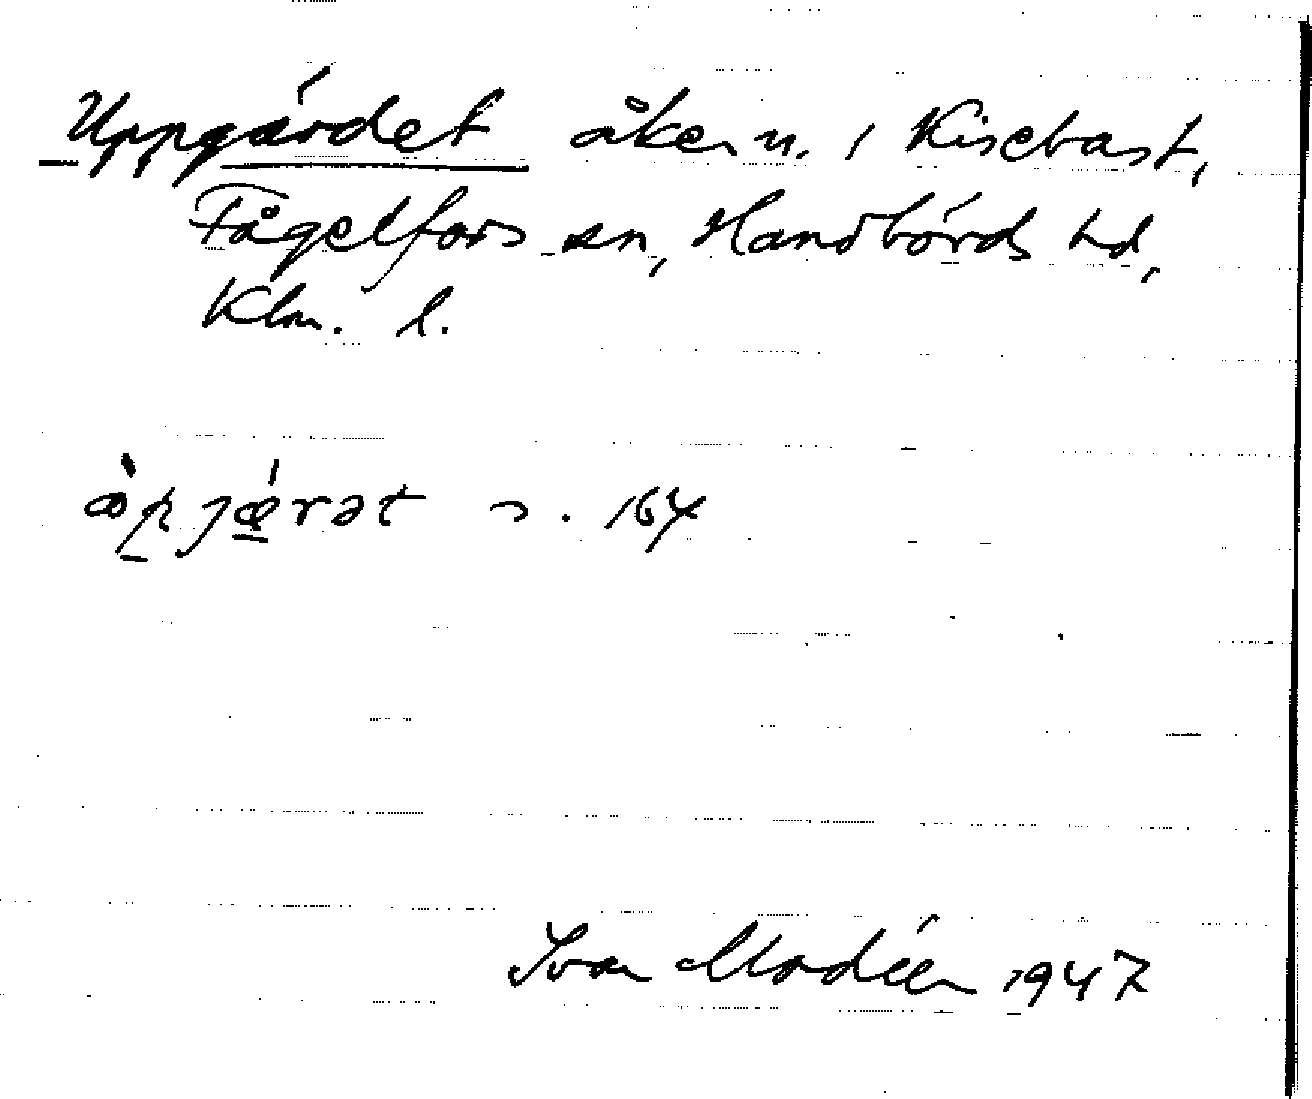 Uppgärdet åkern. i Kisebast,
Fågelfors sn, Handbörds hd,
Klm. l.
s. 164
Ivan Modéer 1947